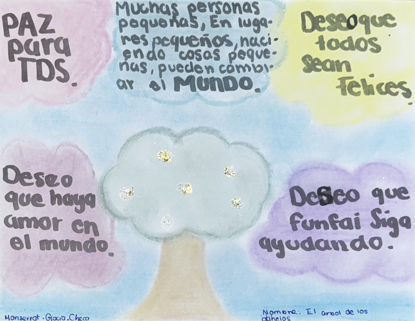 PAZ
para
TDS.
Muchas personas
pequeñas, En luga-
res pequeños, haci-
endo cosas peque-
ñas, pueden cambi-
ar el MUNDO.
Deseo que
todos
sean
Felices.
Deseo
que haya
amor en
el mundo.
DeSeo que
funfai Siga
ayudando.
Monserrat
Nombre: El arbol de los